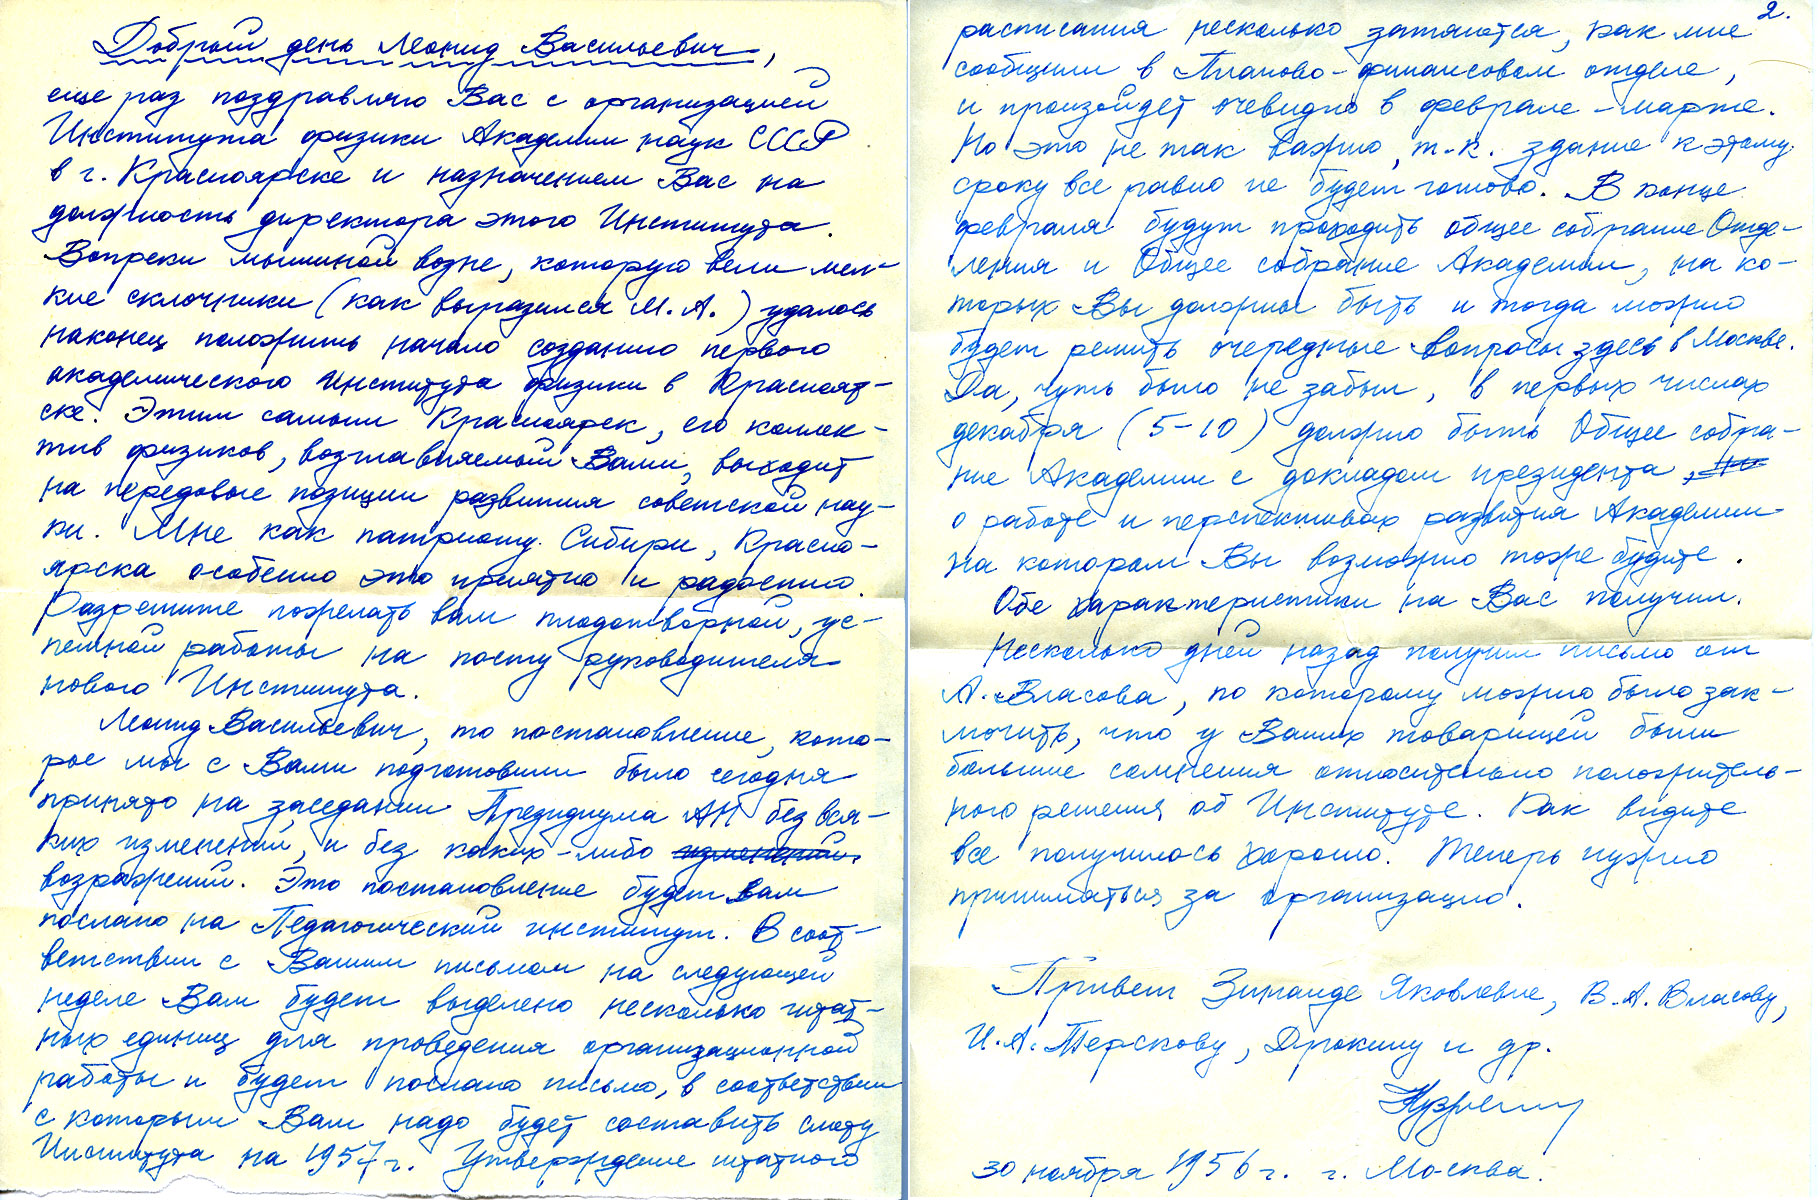 Добрый день Леонид Васильевич,
еще раз поздравляю Вас с организацией
Института физики Академии наук СССР
в г. Красноярске и назначением Вас на
должность директора этого Института.
Вопреки мышиной возне, которую вели мел-
кие склочники (как выразился М.А.) удалось
наконец положить начало созданию первого
академического института физики в Краснояр-
ске. Этим самым Красноярск, его коллек-
тив физиков, возглавляемый Вами, выходит
на передовые позиции развития советской нау-
ки. Мне как патриоту Сибири, Красно-
ярска особенно это приятно и радостно.
Разрешите пожелать вам плодотворной, ус-
пешной работы на посту руководителя
нового Института.
Леонид Васильевич, то постановление, кото-
рое мы с Вами подготовили было сегодня
принято на заседании Президиума АН без вся-
ких изменений, и без каких-либо изменений
возражений. Это постановление будет вам
послано на Педагогический институт. В соот-
ветствии с Вашим письмом на следующей
неделе Вам будет выделено несколько штат-
ных единиц для проведения организационной
работы и будет послано письмо, в соответствии
с которым Вам надо будет составить смету
Института на 1957 г. Утверждение штатного
2.
расписания несколько затянется, как мне
сообщили в Планово-финансовом отделе,
и произойдет очевидно в феврале-марте.
Но это не так важно, т.к. здание к этому
сроку все равно не будет готово. В конце
февраля будут проходить общее собрание Отде-
ления и Общее собрание Академии, на ко-
торых Вы должны быть и тогда можно
будет решить очередные вопросы здесь в Москве.
Да, чуть было не забыл, в первых числах
декабря (5-10) должно быть Общее собра-
ние Академии с докладом президента
о работе и перспективах развития Академии
на котором Вы возможно тоже будите.
Обе характеристики на Вас получил.
Несколько дней назад получил письмо от
А. Власова, по которому можно было зак-
лючить, что у Ваших товарищей были
большие сомнения относительно положитель-
ного решения об Институте. Как видите
все получилось хорошо. Теперь нужно
приниматься за организацию.
Привет Зинаиде Яковлевне, В.А. Власову,
И.А. Терскову, Дрокину и др.
30 ноября 1956 г. г. Москва.